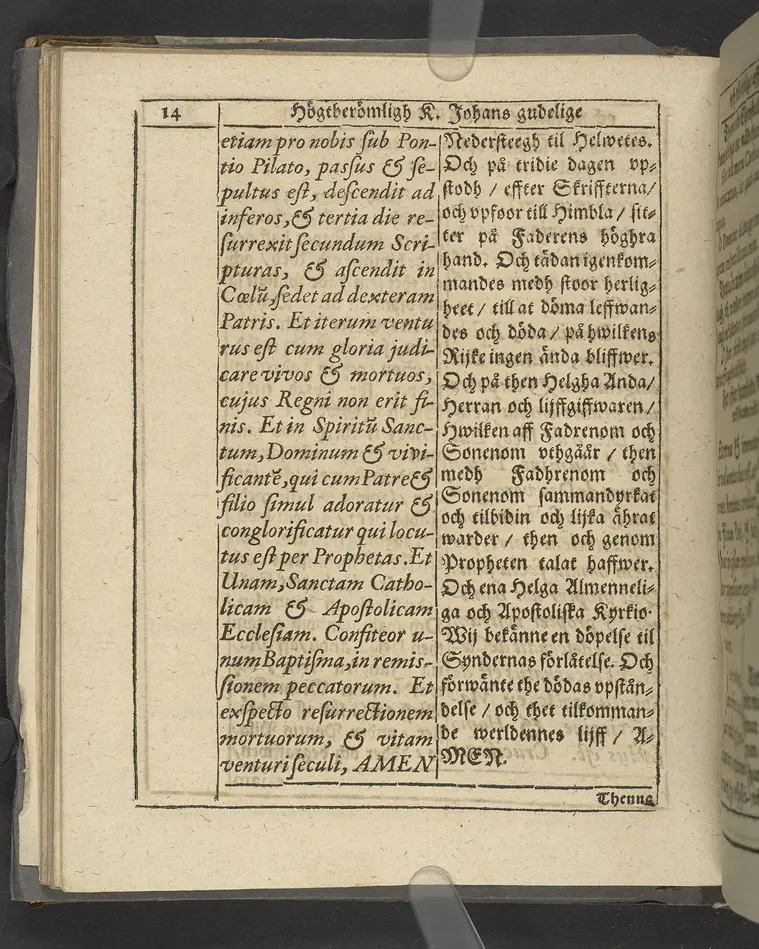 14
Högtberömligh K. Johans gudelige
etiam pro nobis ſub Pon-
tio Pilato, paſſus & ſe-
pultus eſt, deſcendit ad
inferos, & tertia die re-
ſurrexit ſecundum Scri-
pturas, & aſcendit in
Cœlū, ſedet ad dexteram
Patris. Et iterum ventu
rus eſt cum gloria judi-
care vivos & mortuos,
cujus Regni non erit fi-
nis. Et in Spiritū Sanc-
tum, Dominum & vivi-
ficantē, qui cum Patre &
filio ſimul adoratur &
conglorificatur qui locu-
tus eſt per Prophetas. Et
Unam, Sanctam Catho-
licam & Apoſtolicam
Eccleſiam. Confiteor u-
num Baptiſma, in remiſ-
ſionem peccatorum. Et
exſpecto reſurrectionem
mortuorum, & vitam
venturi ſeculi, AMEN
Nederſteegh til Helwetes.
Och på tridie dagen vp-
ſtodh / effter Skriffterna/
och vpfoor till Himbla / ſit-
ter på Faderens höghra
hand. Och tädan igenkom-
mandes medh ſtoor herlig-
heet / till at döma leffwan-
des och döda / på hwilkens
Rijke ingen ända bliffwer.
Och på then Helgha Anda/
Herran och lijffgiffwaren /
Hwilken aff Fadrenom och
Sonenom vthgåår / then
medh Fadhrenom och
Sonenom ſammandyrkat
och tilbidin och lijka ährat
warder / then och genom
Propheten talat haffwer.
Och ena Helga Almenneli-
ga och Apoſtoliſka Kyrkio.
Wij bekänne en döpelſe til
Syndernas förlåtelſe. Och
förwänte the dödas vpſtån-
delſe / och thet tilkomman-
de werldennes lijff / A-
MEN.
Thenna